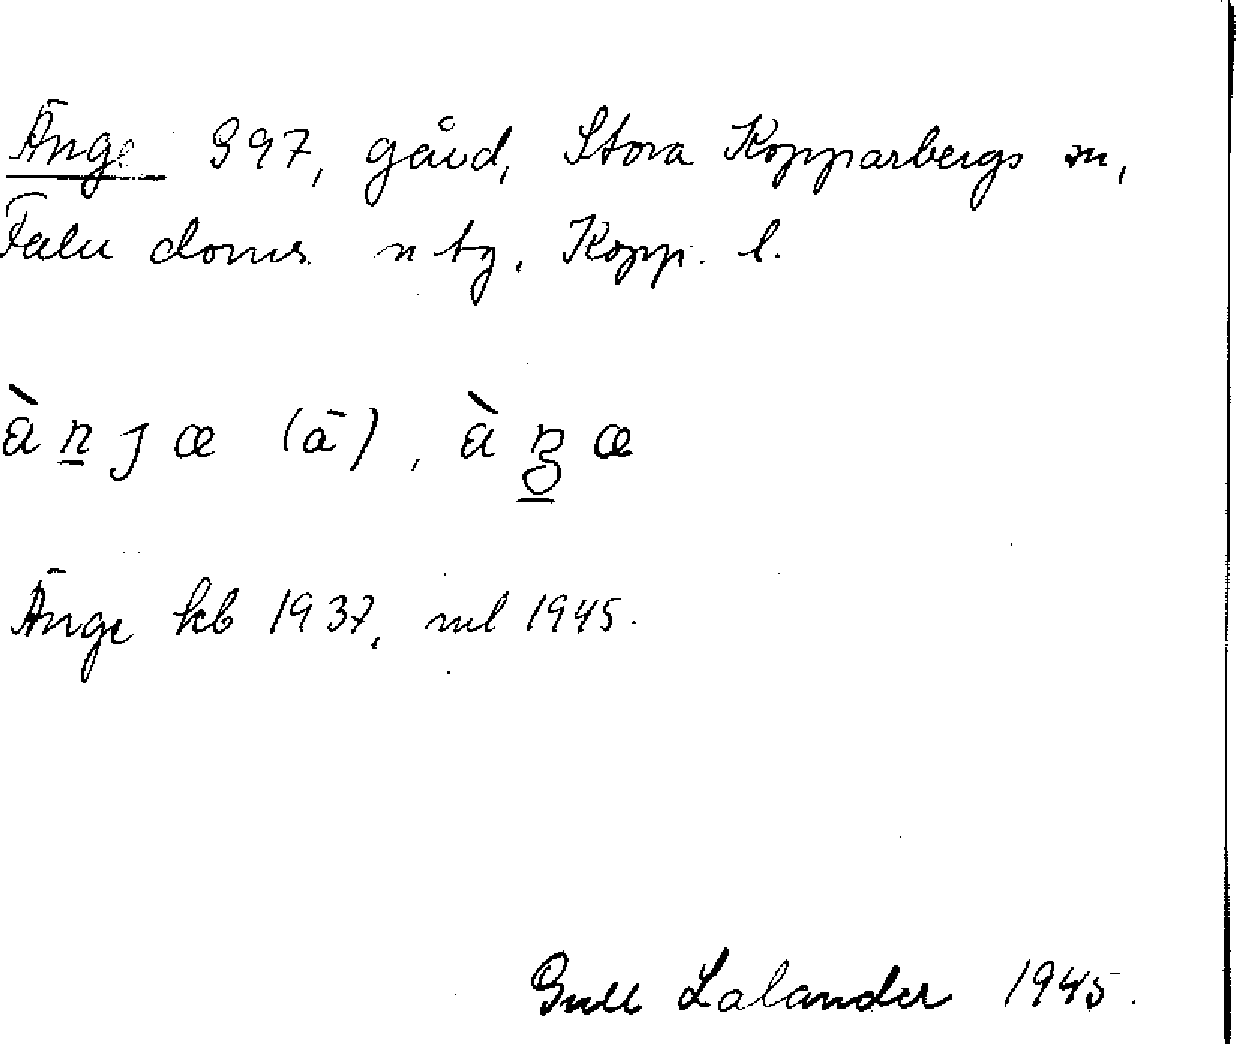 Änge 397, gård, Stora Kopparbergs sn,
Falu doms. ntg. Kopp. l.
à n j œ (ā), à œ
Änge kb 1937, ml 1945.
Gull Lalander 1945.